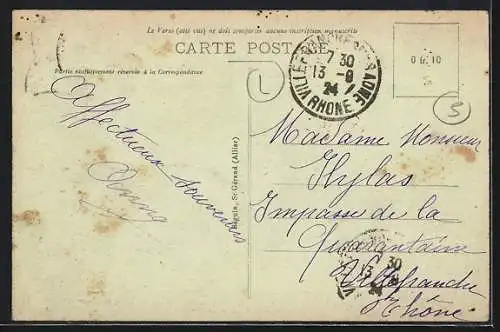 Le Verso (côté vue) ne doit comporter aucune inscription manuscrite
CARTE POSTALE
Partie exclusivement réservée à la Correspondance
7 30
13 - 9
24
RHONE
L
3
Affectueux souvenirs
Béguin, St-Gérand (Allier)
Madame Monsieur
Hylas
Impasse de la
Quarantaine
Villefranche
Rhône
30
13
24